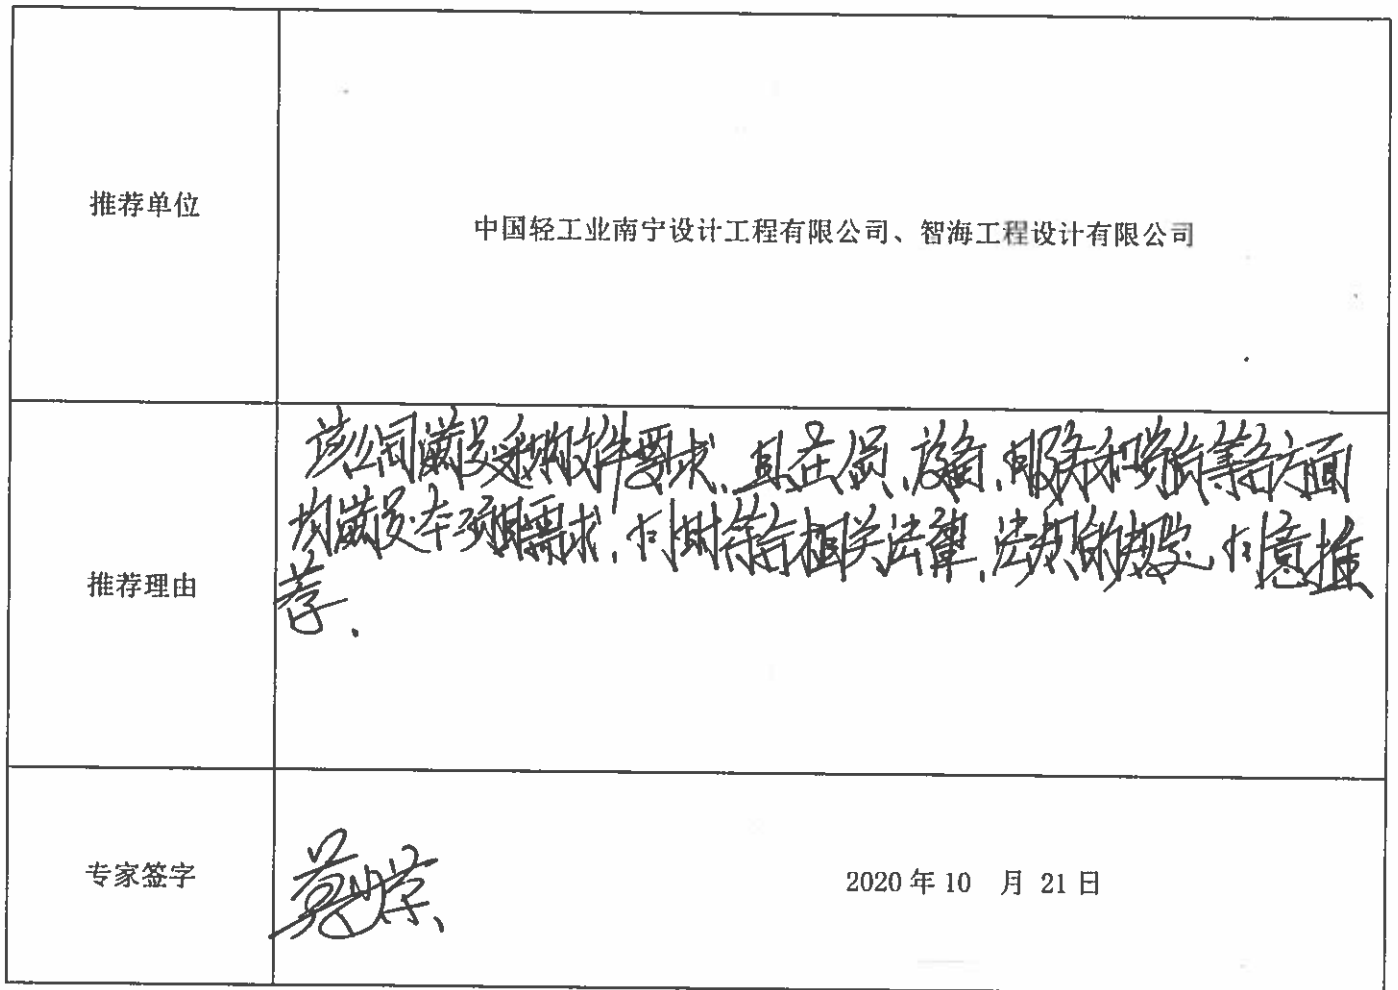 推荐单位
中国轻工业南宁设计工程有限公司、智海工程设计有限公司
该公司满足采购文件要求,且在人员,设备,服务和资质等各方面
推荐理由
均满足本项目需求,同时符合相关法律,法规的规定,同意推
荐.
专家签字
2020年10 月 21日